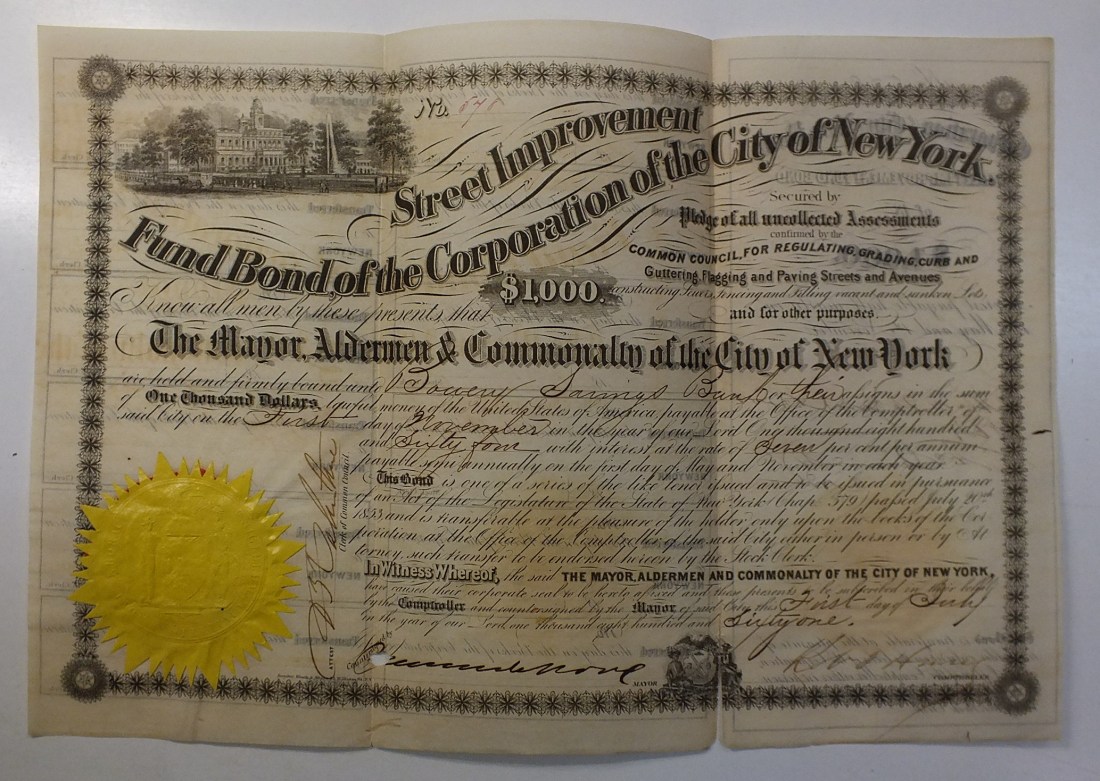 No. 648
Street Improvement
Fund Bond, of the Corporation of the City of New York.
Secured by
Pledge of all uncollected Assessments
confirmed by the
COMMON COUNCIL, FOR REGULATING, GRADING, CURB AND
Guttering, Flagging and Paving Streets and Avenues
$1,000.
constructing Sewers, Fencing and Filling vacant and sunken Lots,
and for other purposes.
Know all men by these presents that
The Mayor, Aldermen & Commonalty of the City of New York
are held and firmly bound unto Bowery Savings Bank or their assigns in the sum
One Thousand Dollars, lawful money of the United States of America payable at the Office of the Comptroller of
said City on the First day of November in the year of our Lord One thousand eight hundred
and Sixty four with interest at the rate of Seven per cent per annum
payable semi annually on the first day of May and November in each year
This Bond is one of a series of the like tenor issued and to be issued in pursuance
of an Act of the Legislature of the State of New York Chap. 579) passed July 20th
1853, and is transferable at the pleasure of the holder only upon the books of the Cor
poration at the Office of the Comptroller of the said City either in person or by At
torney such transfer to be endorsed hereon by the Stock Clerk.
In Witness Whereof, the said THE MAYOR, ALDERMEN AND COMMONALTY OF THE CITY OF NEW YORK,
have caused their corporate seal to be hereto affixed and these presents to be subscribed
by the Comptroller and countersigned by the Mayor of said City this First day July
in the year of our Lord one thousand eight hundred and Sixty one.
ATTEST
Clerk of Common Council
Countersigned
Fernando Wood
MAYOR
COMPTROLLER